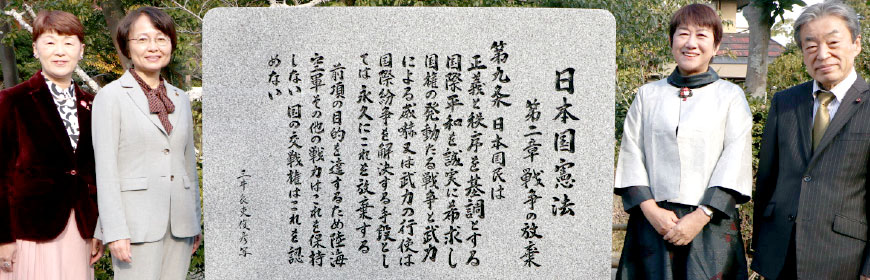 日本国憲法
第二章 戦争の放棄
第九条 日本国民は
正義と秩序を基調とする
国際平和を誠実に希求し
国権の発動たる戦争と武力
による威嚇又は武力の行使は
国際紛争を解決する手段とし
ては 永久にこれを放棄する
前項の目的を達するため 陸海
空軍その他の戦力は これを保持
しない 国の交戦権は これを認
めない